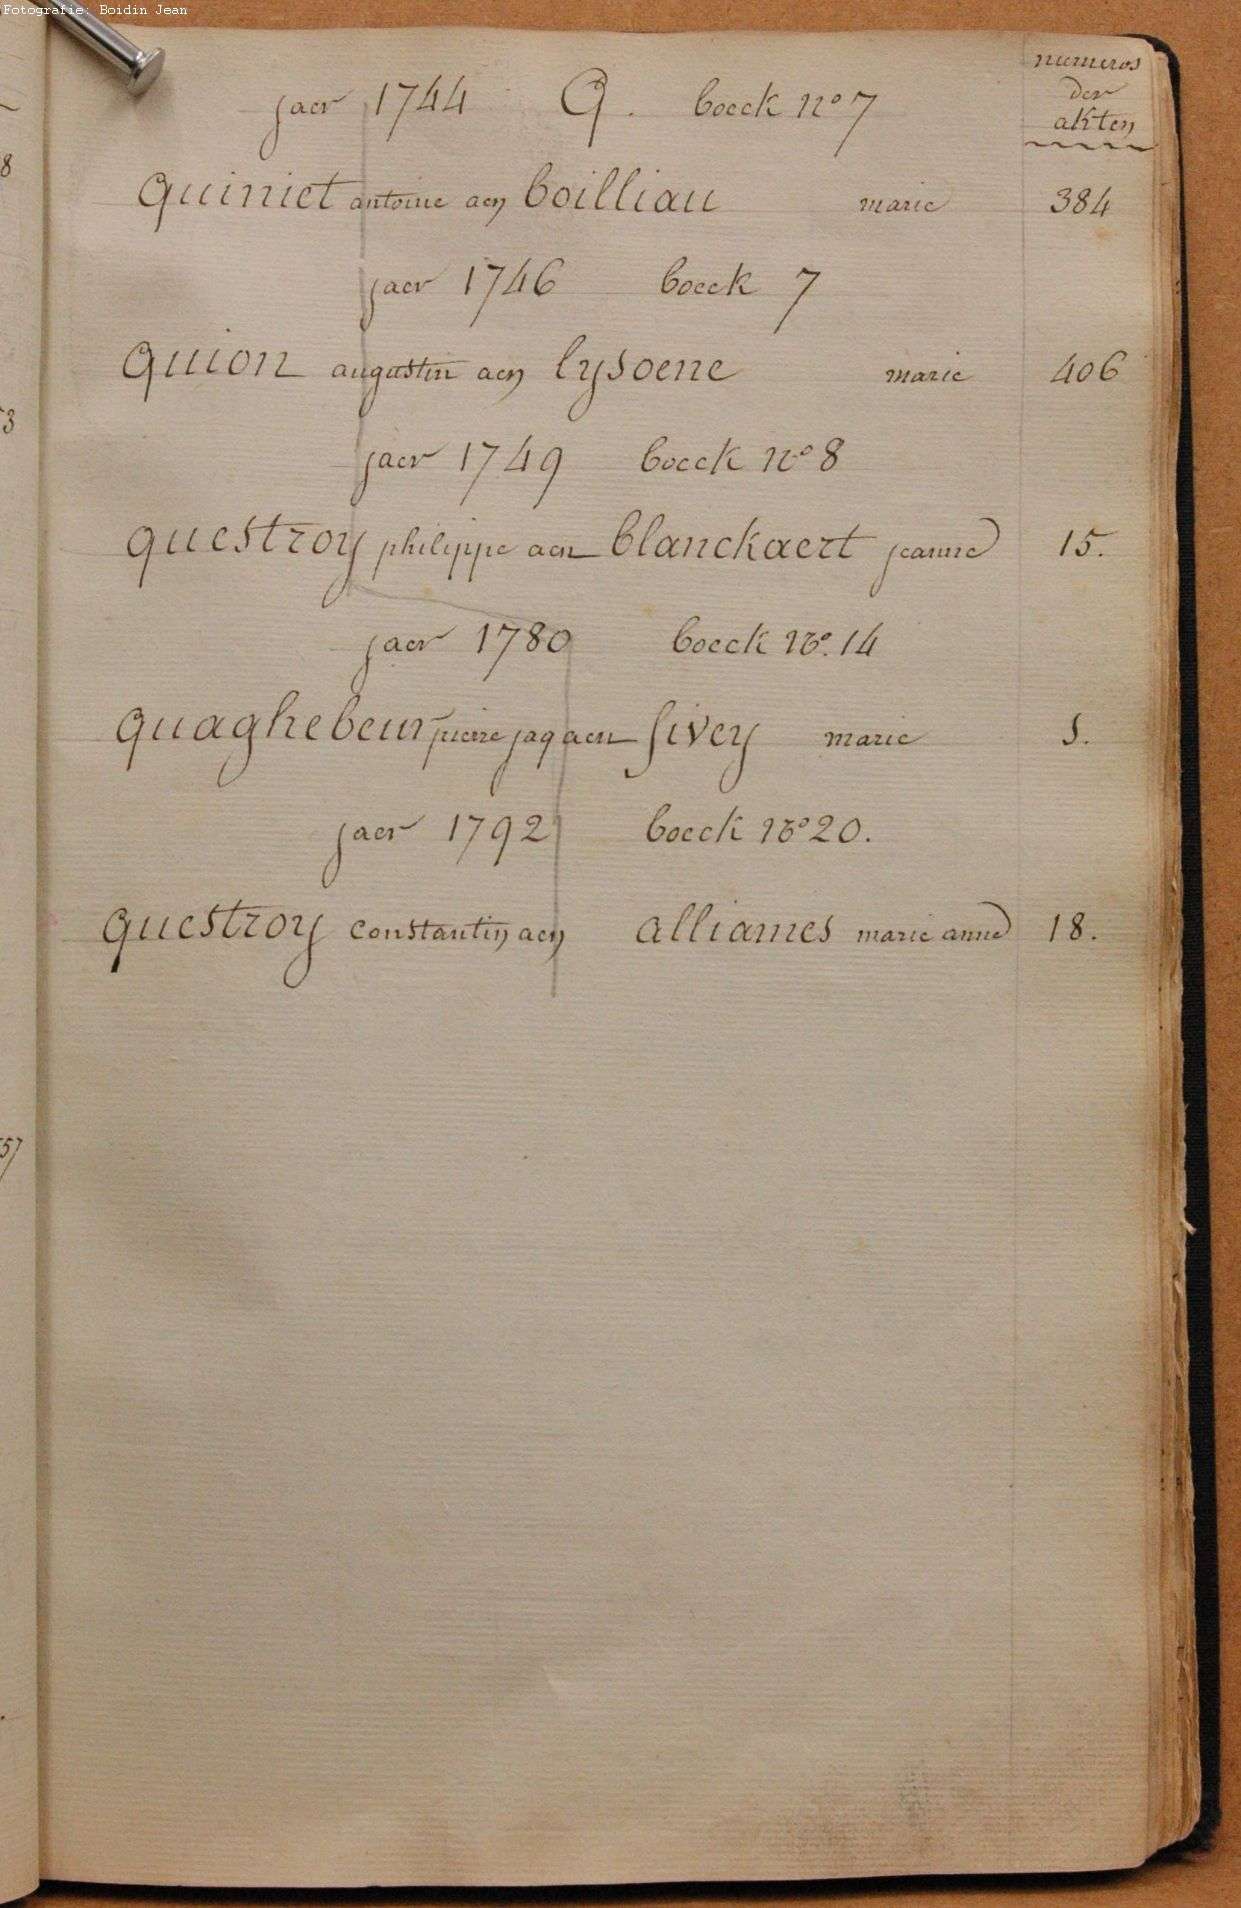 Fotografie: Boidin Jean
numeros
der
akten
jaer 1744 Q. boeck no 7
quiniet antoine aen boilliau marie 384
jaer 1746 boeck 7
quion augustin aen lysoene marie 406
jaer 1749 boeck no 8
questroy philippe aen blanckaert jeanne 15.
jaer 1780 boeck no. 14
quaghebeur pierre jaq aen sivey marie 5.
jaer 1792 boeck no 20.
questroy constantin aen alliames marie anne 18.
8
3
57